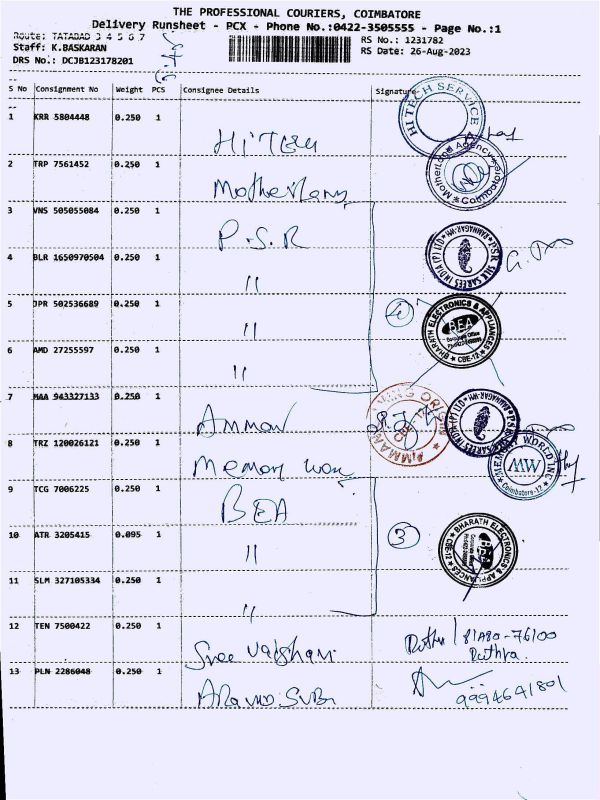 THE PROFESSIONAL COURIERS, COIMBATORE
Delivery Runsheet - PCX - Phone No.:0422-3505555 - Page No.:1
Route: TATABAD 3 4 5 6 7
RS No.: 1231782
Staff: K.BASKARAN
RS Date: 26-Aug-2023
DRS No.: DCJB123178201
S No Consignment No Weight PCS Consignee Details Signature
1 KRR 5804448 0.250 1
HITECH SERVICE
2 TRP 7561452 0.250 1
MotherLand Agency Coimbatore
3 VNS 505055084 0.250 1 P.S.R
4 BLR 1650970504 0.250 1 "
PSR SILK SAREES INDIA (P) LTD
5 JPR 502536689 0.250 1 "
4
BHARATH ELECTRONICS & APPLIANCES
BEA
CBE-12
6 AMD 27255597 0.250 1 "
7 MAA 943327133 0.250 1 Amman
PSR SILK SAREES INDIA (P) LTD
8 TRZ 120026121 0.250 1 Memory
MEMORY WORLD INC
MW
Coimbatore-12
9 TCG 7006225 0.250 1 BEA
10 ATR 3205415 0.095 1 "
3
BHARATH ELECTRONICS & APPLIANCES
BEA
CBE-12
11 SLM 327105334 0.250 1 "
12 TEN 7500422 0.250 1 Sree
Ruthra
13 PLN 2286048 0.250 1
9994641801